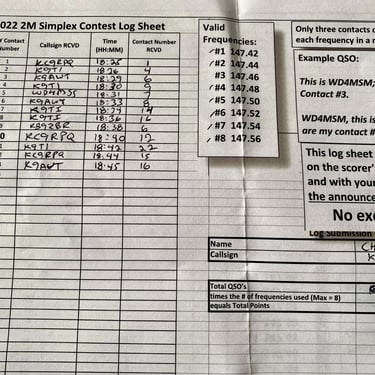 022 2M Simplex Contest Log Sheet
Contact Number Callsign RCVD Time (HH:MM) Contact Number RCVD
1 KC9RPQ 18:25 1
2 K9TI 18:26 4
3 K9AWT 18:29 6
4 K9TI 18:30 9
5 WD4MSM 18:31 7
6 K9AWT 18:33 8
7 K9TI 18:34 14
8 K9TI 18:36 16
18:38 6
0 KC9RPQ 18:40 12
1 K9TI 18:42 22
2 KC9RPQ 18:44 15
3 K9AWT 18:45 16
Valid
Frequencies:
#1 147.42
#2 147.44
#3 147.46
#4 147.48
#5 147.50
#6 147.52
#7 147.54
#8 147.56
Only three contacts
each frequency in a
Example QSO:
This is WD4MSM;
Contact #3.
WD4MSM, this is
are my contact #
This log sheet
on the scorer's
and with your
the announce
No
Log Submission
Name
Callsign
Total QSO's
times the # of frequencies used (Max = 8)
equals Total Points